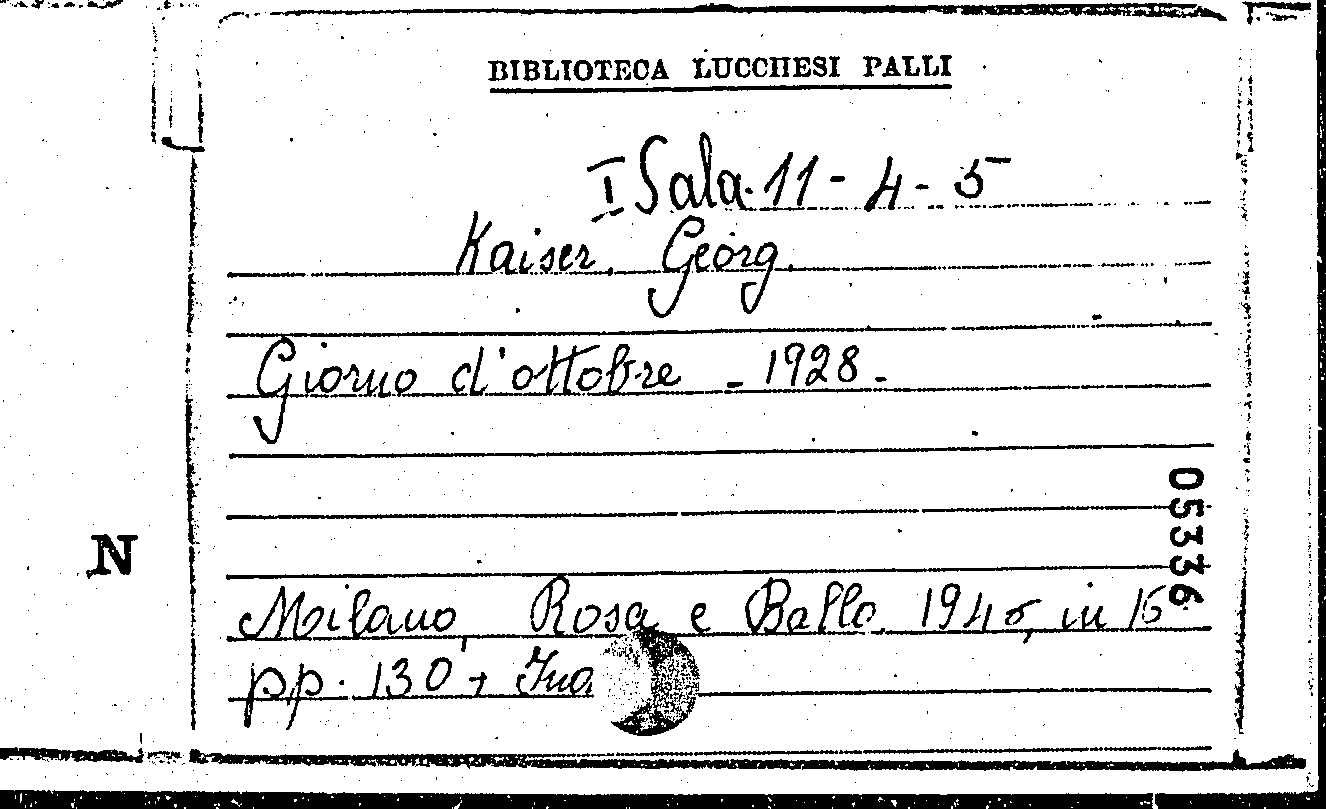 BIBLIOTECA LUCCHESI PALLI
I Sala. 11 - 4 - 5
Kaiser, Georg.
Giorno d'ottobre - 1928 -
05336
N
Milano, Rosa e Ballo, 1945, in 16
pp. 130 +